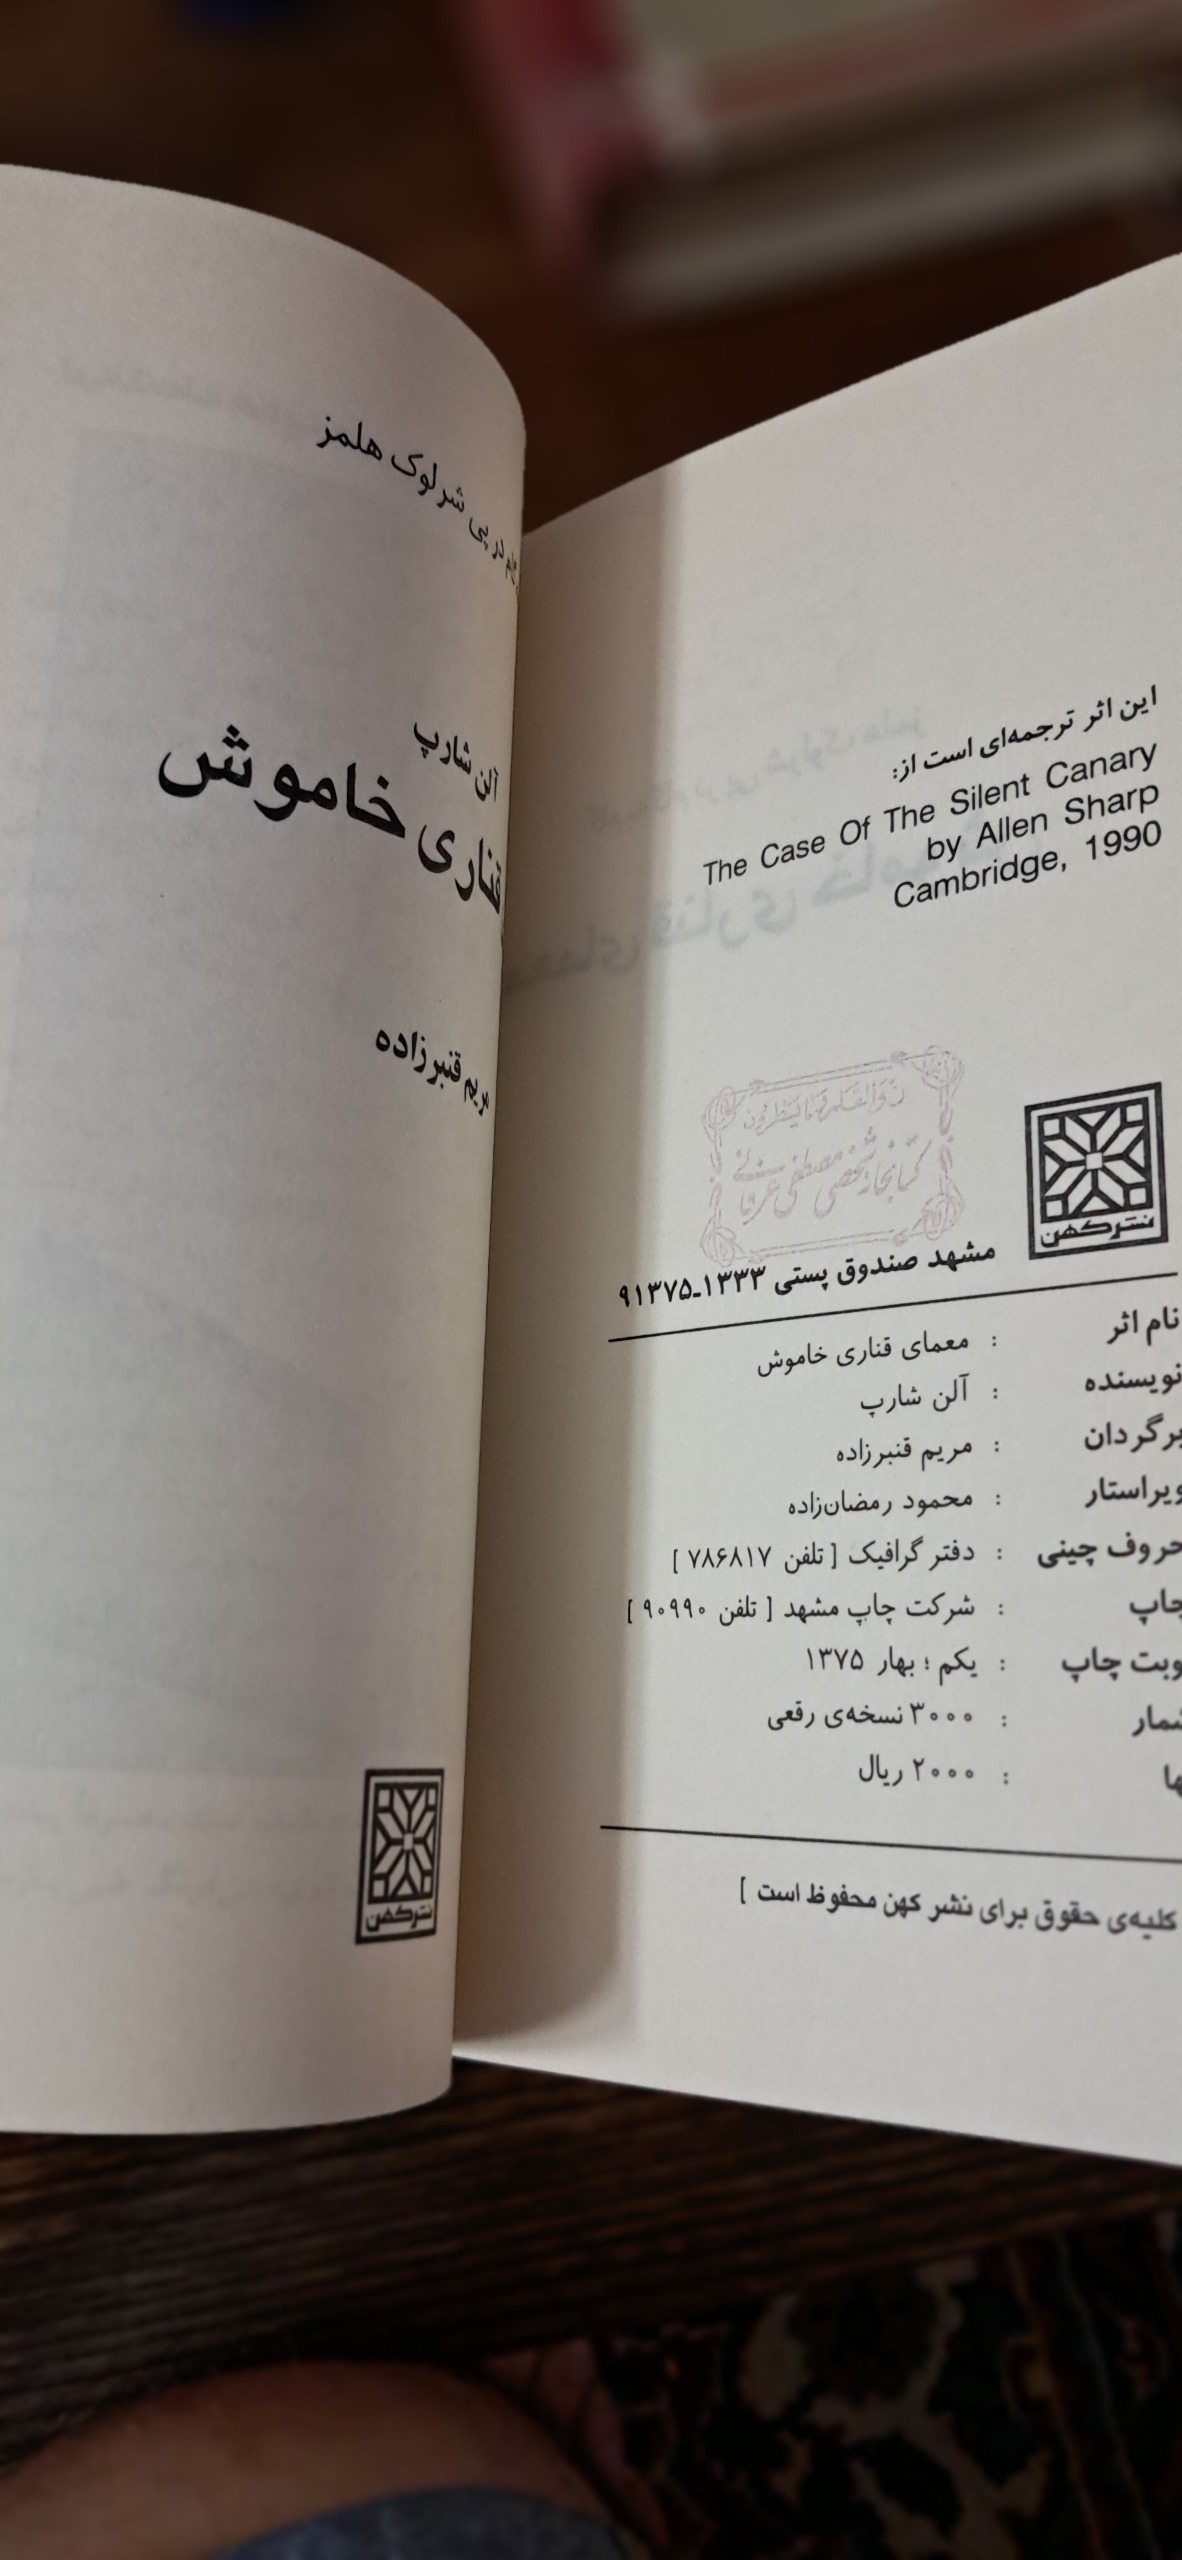 گام در پی شرلوک هلمز
آلن شارپ
قناری خاموش
مریم قنبرزاده
نشر کهن
این اثر ترجمه‌ای است از:
The Case Of The Silent Canary
by Allen Sharp
Cambridge, 1990
ن والقلم و ما یسطرون
کتابخانه شخصی مصطفی عرفانی
نشر کهن
مشهد صندوق پستی ۱۳۳۳-۹۱۳۷۵
نام اثر : معمای قناری خاموش
نویسنده : آلن شارپ
برگردان : مریم قنبرزاده
ویراستار : محمود رمضان‌زاده
حروف چینی : دفتر گرافیک [ تلفن ۷۸۶۸۱۷ ]
چاپ : شرکت چاپ مشهد [ تلفن ۹۰۹۹۰ ]
نوبت چاپ : یکم ؛ بهار ۱۳۷۵
شمار : ۳۰۰۰ نسخه‌ی رقعی
بها : ۲۰۰۰ ریال
کلیه‌ی حقوق برای نشر کهن محفوظ است ]